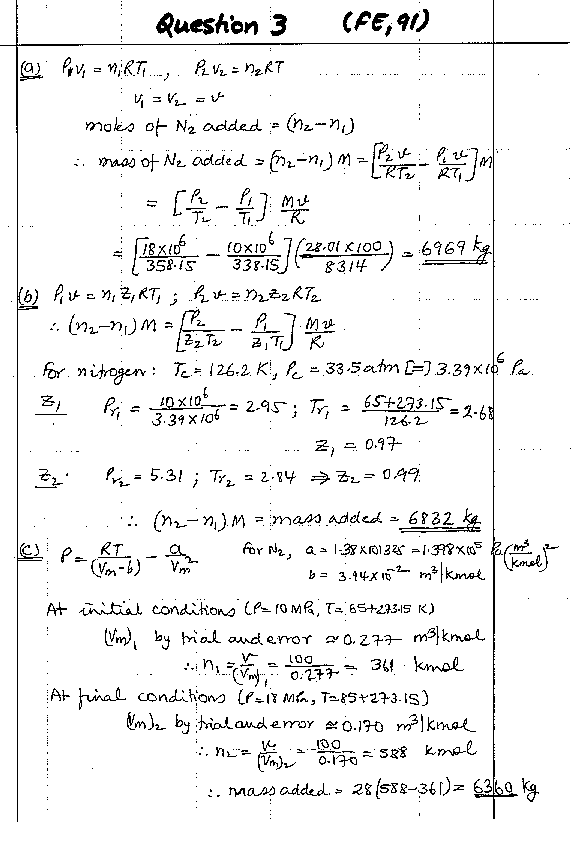 Question 3 (FE, 91)
(a) P₁V₁ = n₁RT₁ , P₂V₂ = n₂RT
V₁ = V₂ = V
moles of N₂ added = (n₂-n₁)
∴ mass of N₂ added = (n₂-n₁) M = [P₂V/RT₂ - P₁V/RT₁] M
= [P₂/T₂ - P₁/T₁] MV/R
= [18×10⁶/358.15 - 10×10⁶/338.15] (28.01×100/8314) = 6969 kg
(b) P₁V = n₁Z₁RT₁ ; P₂V = n₂Z₂RT₂
∴ (n₂-n₁) M = [P₂/Z₂T₂ - P₁/Z₁T₁] MV/R
For nitrogen: Tc = 126.2 K, Pc = 33.5 atm [=] 3.39×10⁶ Pa
Z₁ Pr₁ = 10×10⁶/3.39×10⁶ = 2.95 ; Tr₁ = 65+273.15/126.2 = 2.68
Z₁ = 0.97
Z₂ Pr₂ = 5.31 ; Tr₂ = 2.84 ⇒ Z₂ = 0.99
∴ (n₂-n₁) M = mass added = 6832 kg
(c) P = RT/(Vm-b) - a/Vm² For N₂, a = 1.38×101325 = 1.398×10⁵ Pa (m³/kmol)²
b = 3.94×10⁻² m³/kmol
At initial conditions (P=10 MPa, T=65+273.15 K)
(Vm)₁ by trial and error ≈ 0.277 m³/kmol
∴ n₁ = V/(Vm)₁ = 100/0.277 = 361 kmol
At final conditions (P=18 MPa, T=85+273.15)
(Vm)₂ by trial and error ≈ 0.170 m³/kmol
∴ n₂ = V/(Vm)₂ = 100/0.170 = 588 kmol
∴ mass added = 28(588-361) = 6360 kg